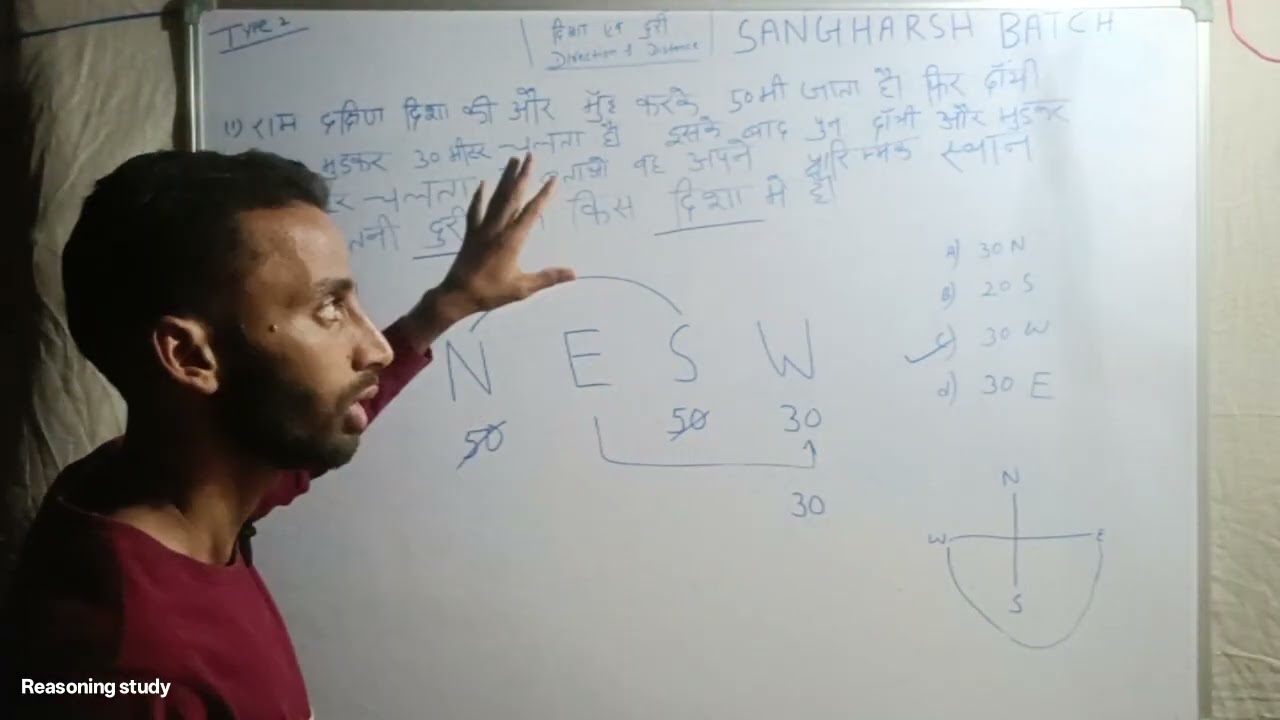 TYPE 2
दिशा एवं दुरी
Direction & Distance
SANGHARSH BATCH
(1) राम दक्षिण दिशा की और मुँह करके 50मी जाता है। फिर दाँयी
मुडकर 30 मीटर चलता है इसके बाद पुन दाँयी और मुडकर
चलता वह अपने स्थान
दुरी किस दिशा मे है।
A) 30 N
B) 20 S
c) 30 W
d) 30 E
N E S W
50 50 30
30
N
W E
S
Reasoning study